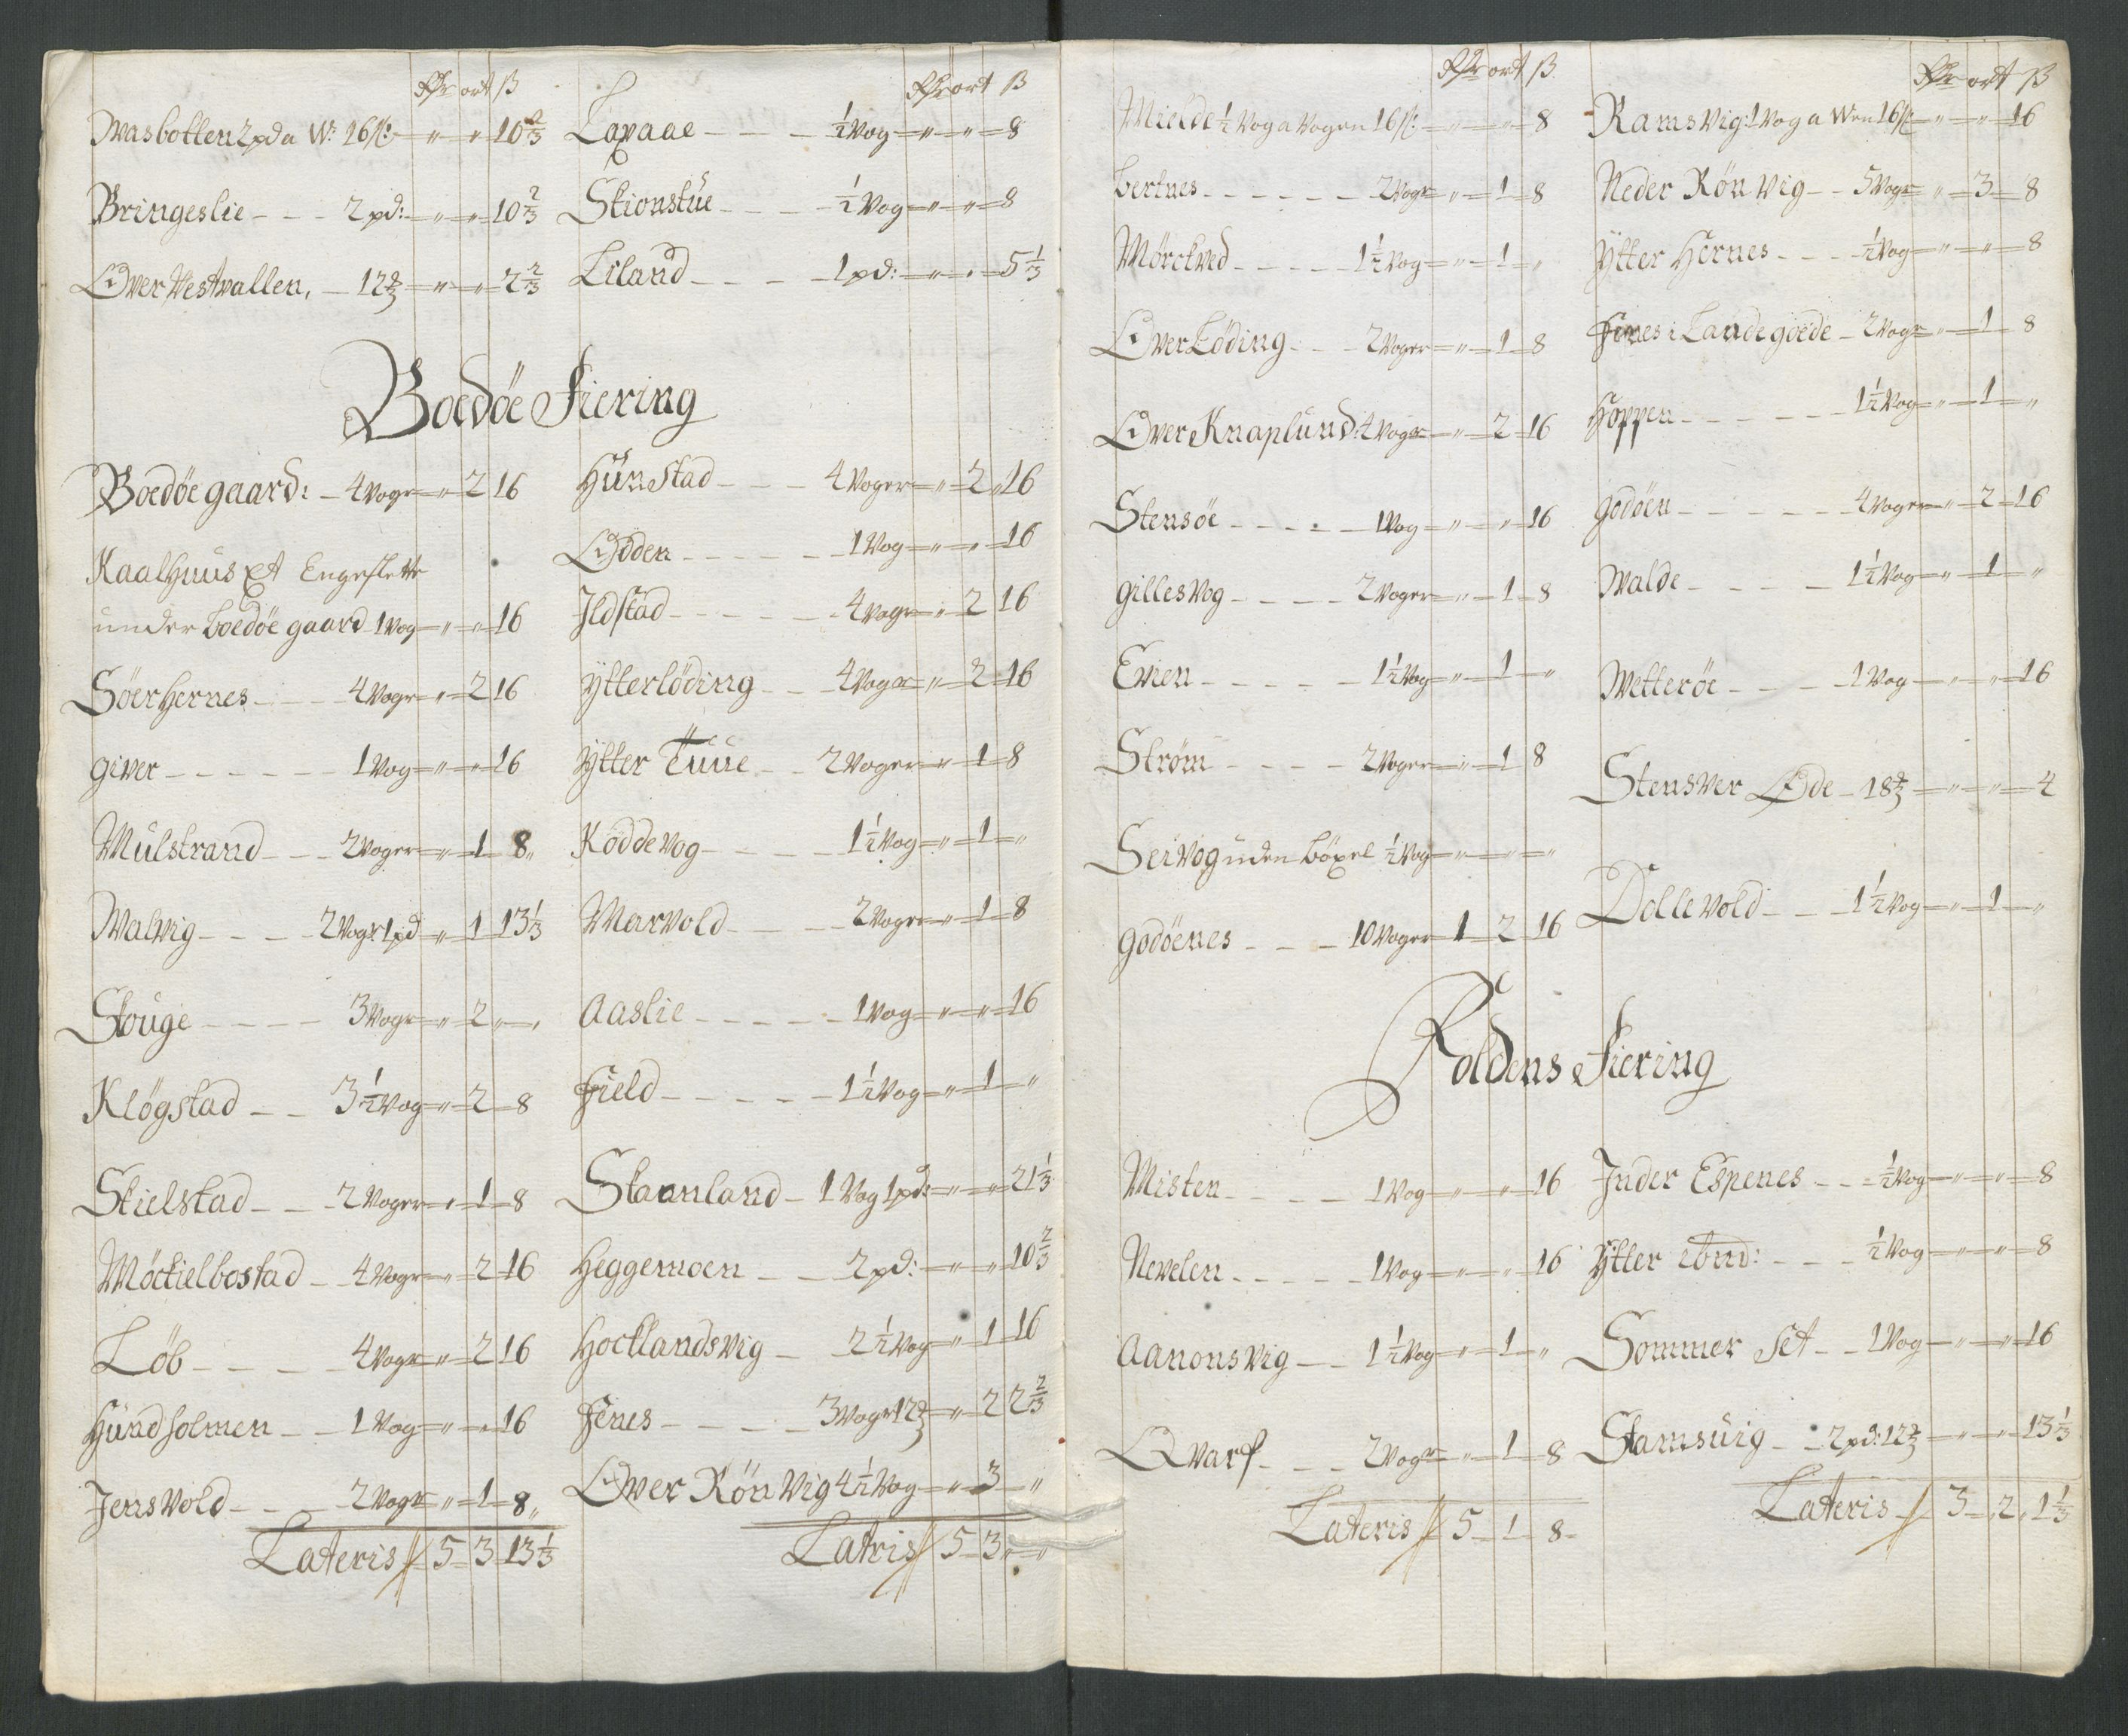 Rdr ort ß
Wasbotten 2 pd a W: 16 ß: " " 10 2/3
Bringeslie 2 pd: " " 10 2/3
Over Westvallen, 12 " " 2 2/3
Rdr ort ß
Laxaae 1/2 Vog " " 8
Skionstue 1/2 Vog " " 8
Liland 1 pd: " " 5 1/3
Boedöe Fiering
Boedöe gaard: 4 Vogr " 2 16
Kaalhuus et Engeslette
under Boedöe gaard 1 Vog " " 16
Söer Hernes 4 Vogr " 2 16
Giver 1 Vog " " 16
Mulstrand 2 Voger " 1 8
Walvig 2 Vogr 1 pd " 1 13 1/3
Skouge 3 Vogr " 2 "
Klögstad 3 1/2 Vog " 2 8
Skielstad 2 Voger " 1 8
Möckielbostad 4 Vogr " 2 16
Löb 4 Vogr " 2 16
Hundholmen 1 Vog " " 16
Jensvold 2 Vogr " 1 8
Lateris 5 3 13 1/3
Hunstad 4 Voger " 2 16
Odden 1 Vog " " 16
Ildstad 4 Vogr " 2 16
Ytterlöding 4 Vogr " 2 16
Ytter Tuue 2 Voger " 1 8
Koddevog 1 1/2 Vog " 1 "
Marvold 2 Voger " 1 8
Aaslie 1 Vog " " 16
Field 1 1/2 Vog " 1 "
Staanland 1 Vog 1 pd: " " 21 1/3
Heggemoen 2 pd: " " 10 2/3
Hocklandsvig 2 1/2 Vog " 1 16
Fenes 3 Vogr 12 " 2 2 2/3
Over Rön Vig 4 1/2 Vog " 3 "
Latris 5 3 "
Rdr ort ß
Mielde 1/2 Vog a Vogen 16 ß: " " 8
Bertnes 2 Vogr " 1 8
Mörckved 1 1/2 Vog " 1 "
Over Löding 2 Voger " 1 8
Over Knaplund: 4 Vogr " 2 16
Stensöe 1 Vog " " 16
Gillesvog 2 Voger " 1 8
Evien 1 1/2 Vog " 1 "
Ström 2 Voger " 1 8
Seivog uden Böxel 1/2 Vog " " "
Godöenes 10 Voger 1 2 16
Rdr ort ß
Ramsvig: 1 Vog a Wen 16 ß " " 16
Neder Rön Vig 5 Vogr " 3 8
Ytter Hernes 1/2 Vog " " 8
Fenes i Landegoede 2 Vogr " 1 8
Hoppen 1 1/2 Vog " 1 "
Godöen 4 Voger " 2 16
Walde 1 1/2 Vog " 1 "
Wetteröe 1 Vog " " 16
Stensver Öde 18 " " 4
Dollevold 1 1/2 Vog " 1 "
Foldens Fiering
Misten 1 Vog " " 16
Nevelen 1 Vog " " 16
Aanonsvig 1 1/2 Vog " 1 "
Qvarf 2 Vogr " 1 8
Lateris 5 1 8
Inder Espenes 1/2 Vog " " 8
Ytter ibnd: 1/2 Vog " " 8
Sommer Set 1 Vog " " 16
Stamsuig 2 pd: 12 " " 13 1/3
Lateris 3 2 1 1/3